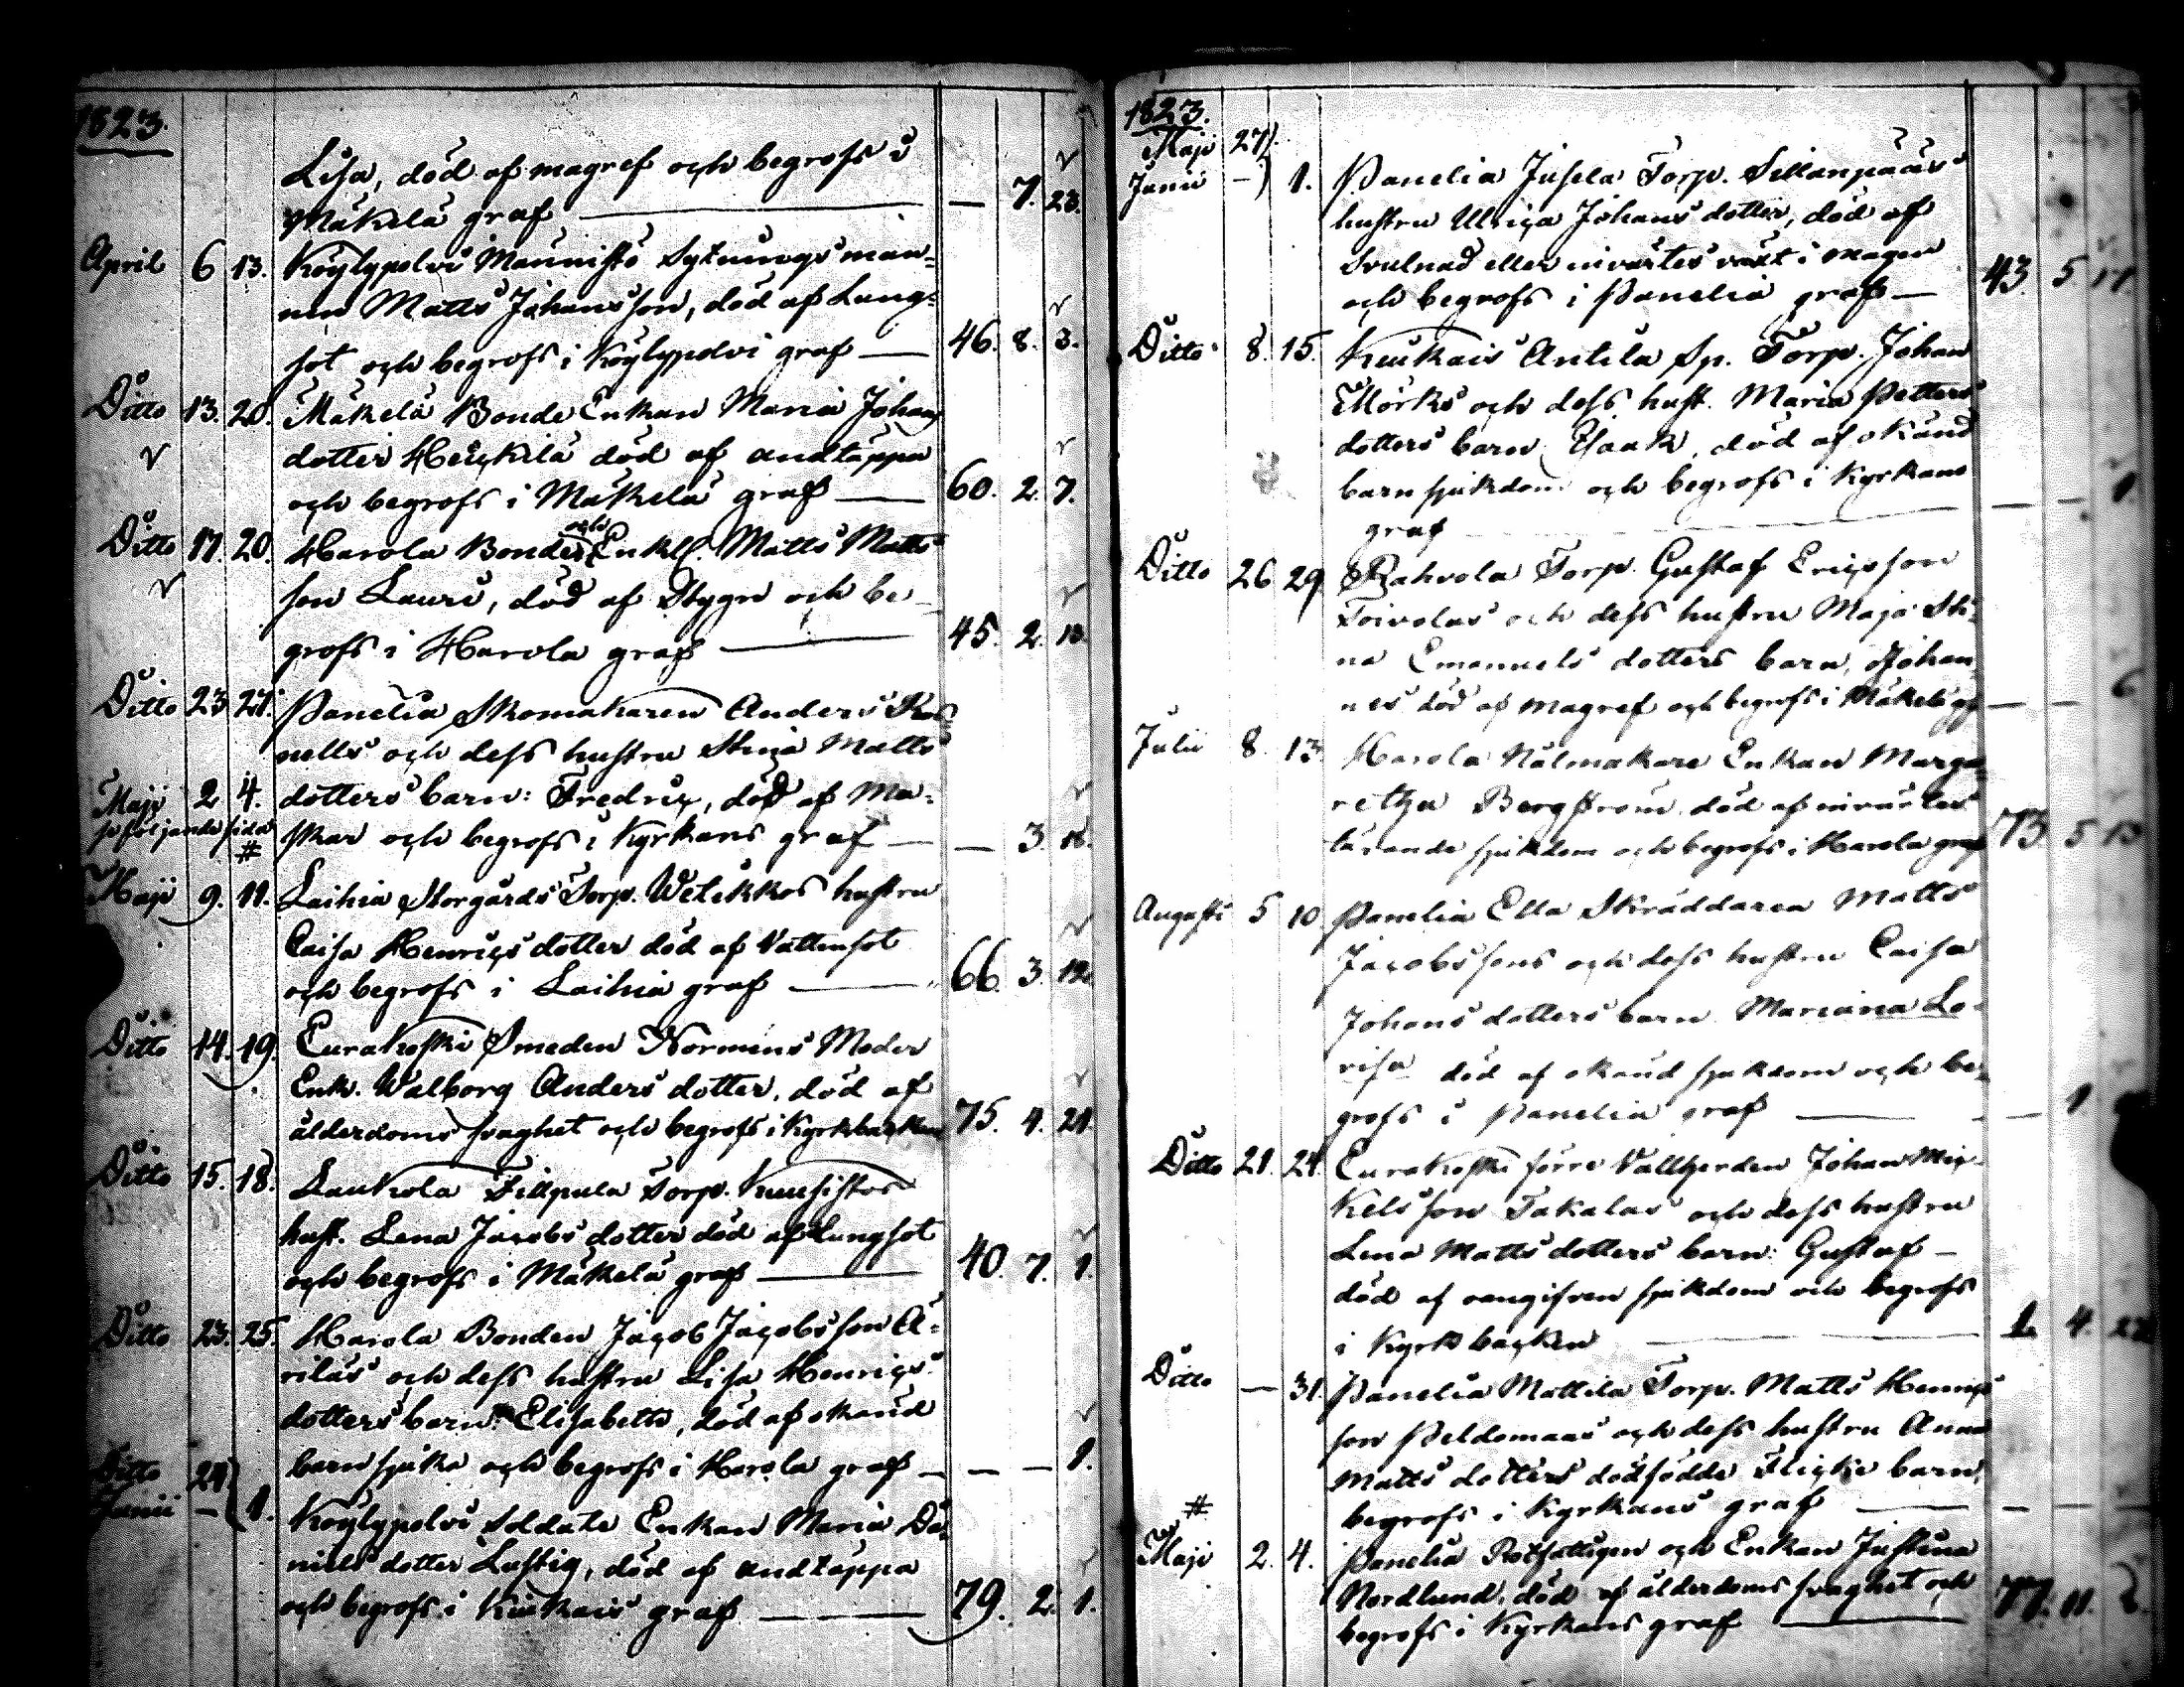 1823.
Lisa, död af magref och begrofs i
Mäkelä graf — — 7. 23.
April 6 13. Köylypolvi Mannisto Sytningsman-
nen Matts Johansson, död af Lung-
sot och begrofs i Köylypolvi graf — 46. 8. 3.
Ditto 13. 20. Mäkelä Bonde Enkan Maria Johans
dotter Heickilä död af andtäppa
och begrofs i Mäkelä graf — 60. 2. 7.
Ditto 17. 20. Harola Bonden och Enkl. Matts Matts
son Lauri, död af Stygn och be-
grofs i Harola graf — 45. 2. 13.
Ditto 23 27. Panelia Skomakaren Anders
nells och dess hustru Stina Matts
Maji 2 4. dotters barn: Fredric, död af Ma-
se följande sida # skar och begrofs i Kyrkans graf — — 3. 16.
Maji 9. 11. Laihia Storgårds Torp. Wetikkos hustru
Caisa Henrics dotter död af Vattensot
och begrofs i Laihia graf — 66. 3. 12.
Ditto 14. 19. Eurakoski Smeden Normens Moder
Enk. Walborg Anders dotter, död af
ålderdoms svaghet och begrofs i Kyrkbacken 75. 4. 21.
Ditto 15. 18. Laukola Filpula Torp. Kuusistos
hust. Lena Jacobs dotter död af Lungsot
och begrofs i Mäkelä graf — 40. 7. 1.
Ditto 23. 25. Harola Bonden Jacob Jacobsson A-
rilas och dess hustru Lisa Henrics
dotters barn: Elisabeth, död af okänd
barnsjuka och begrofs i Harola graf — — — 1.
Ditto 27.
Junii — 1. Köylypolvi Soldate Enkan Maria Da-
niels dotter Lustig, död af andtäppa
och begrofs i Kiukais graf — 79. 2. 1.
1823.
Maji 27.
Junii — 1. Panelia Jusela Torp. Sillanpääs
hustru Ulrica Johans dotter, död af
svulnad eller invärtes växt i magen
och begrofs i Panelia graf — 43. 5. 11
Ditto 8. 15. Kiukais Antila Sp. Torp. Johan
Mörks och dess hust. Maria Petters
dotters barn Isaak, död af okänd
barnsjukdom och begrofs i Kyrkans
graf — — — 1.
Ditto 26 29 Rahvola Torp. Gustaf Ericsson
Toivolas och dess hustru Maja Sti-
na Emanuels dotters barn, Johan-
nes död af magref och begrofs i Mäkelä gf — — 6
Julii 8. 13. Harola Nålmakare Enkan Marga-
retha Bergström död af invärtes
tärande sjukdom och begrofs i Harola graf 73 5 13
Augusti 5 10 Panelia Ella Skräddaren Matts
Jacobssons och dess hustru Caisa
Johans dotters barn Mariana Lo-
visa död af okänd sjukdom och be-
grofs i Panelia graf — — 1
Ditto 21. 24. Eurakoski förre Vallherden Johan Mic-
kelsson Takalas och dess hustru
Lena Matts dotters barn: Gustaf —
död af oangifven sjukdom och begrofs
i Kyrkbacken — 1. 4. 22
Ditto — 31. Panelia Mattila Torp. Matts Henrics
son Peldomaas och dess hustru Anna
Matts dotters dödfödde Flicke barn,
# begrofs i Kyrkans graf — — —
Maji 2. 4. Panelia Rotfattigen och Enkan Justina
Nordlund, död af ålderdoms svaghet och
begrofs i Kyrkans graf — 77. 11. 2.